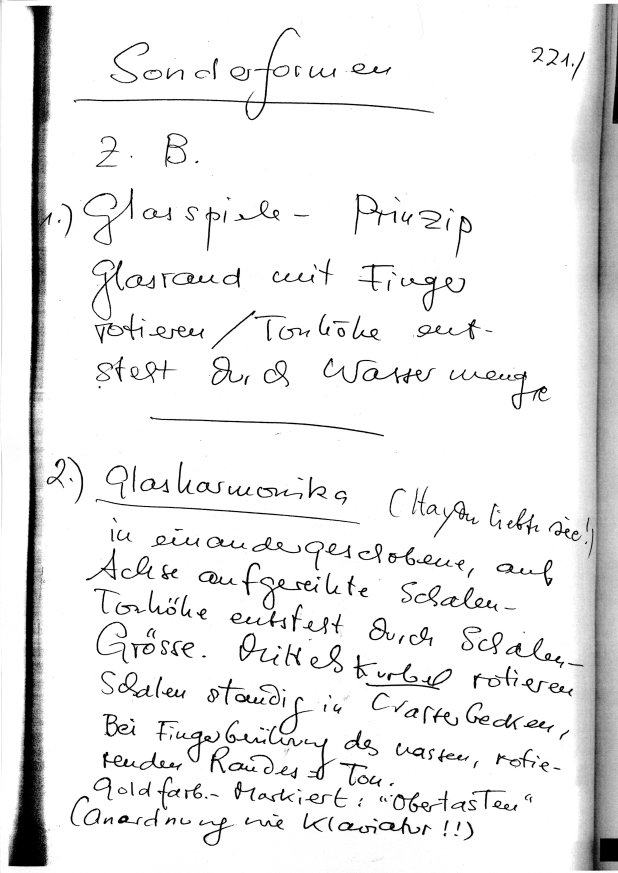 221./
Sonderformen
Z. B.
1.) Glasspiele – Prinzip
Glasrand mit Finger
rotieren / Tonhöhe ent-
steht durch Wassermenge
2.) Glasharmonika (Haydn liebte sie!)
in einandergeschobene, auf
Achse aufgereihte Schalen-
Tonhöhe entsteht durch Schalen-
Grösse. Mittels Kurbel rotieren
Schalen ständig in Wasserbecken,
Bei Fingerberührung des nassen, rotie-
renden Randes → Ton.
Goldfarb.- Markiert: "Obertasten"
(Anordnung wie Klaviatur!!)